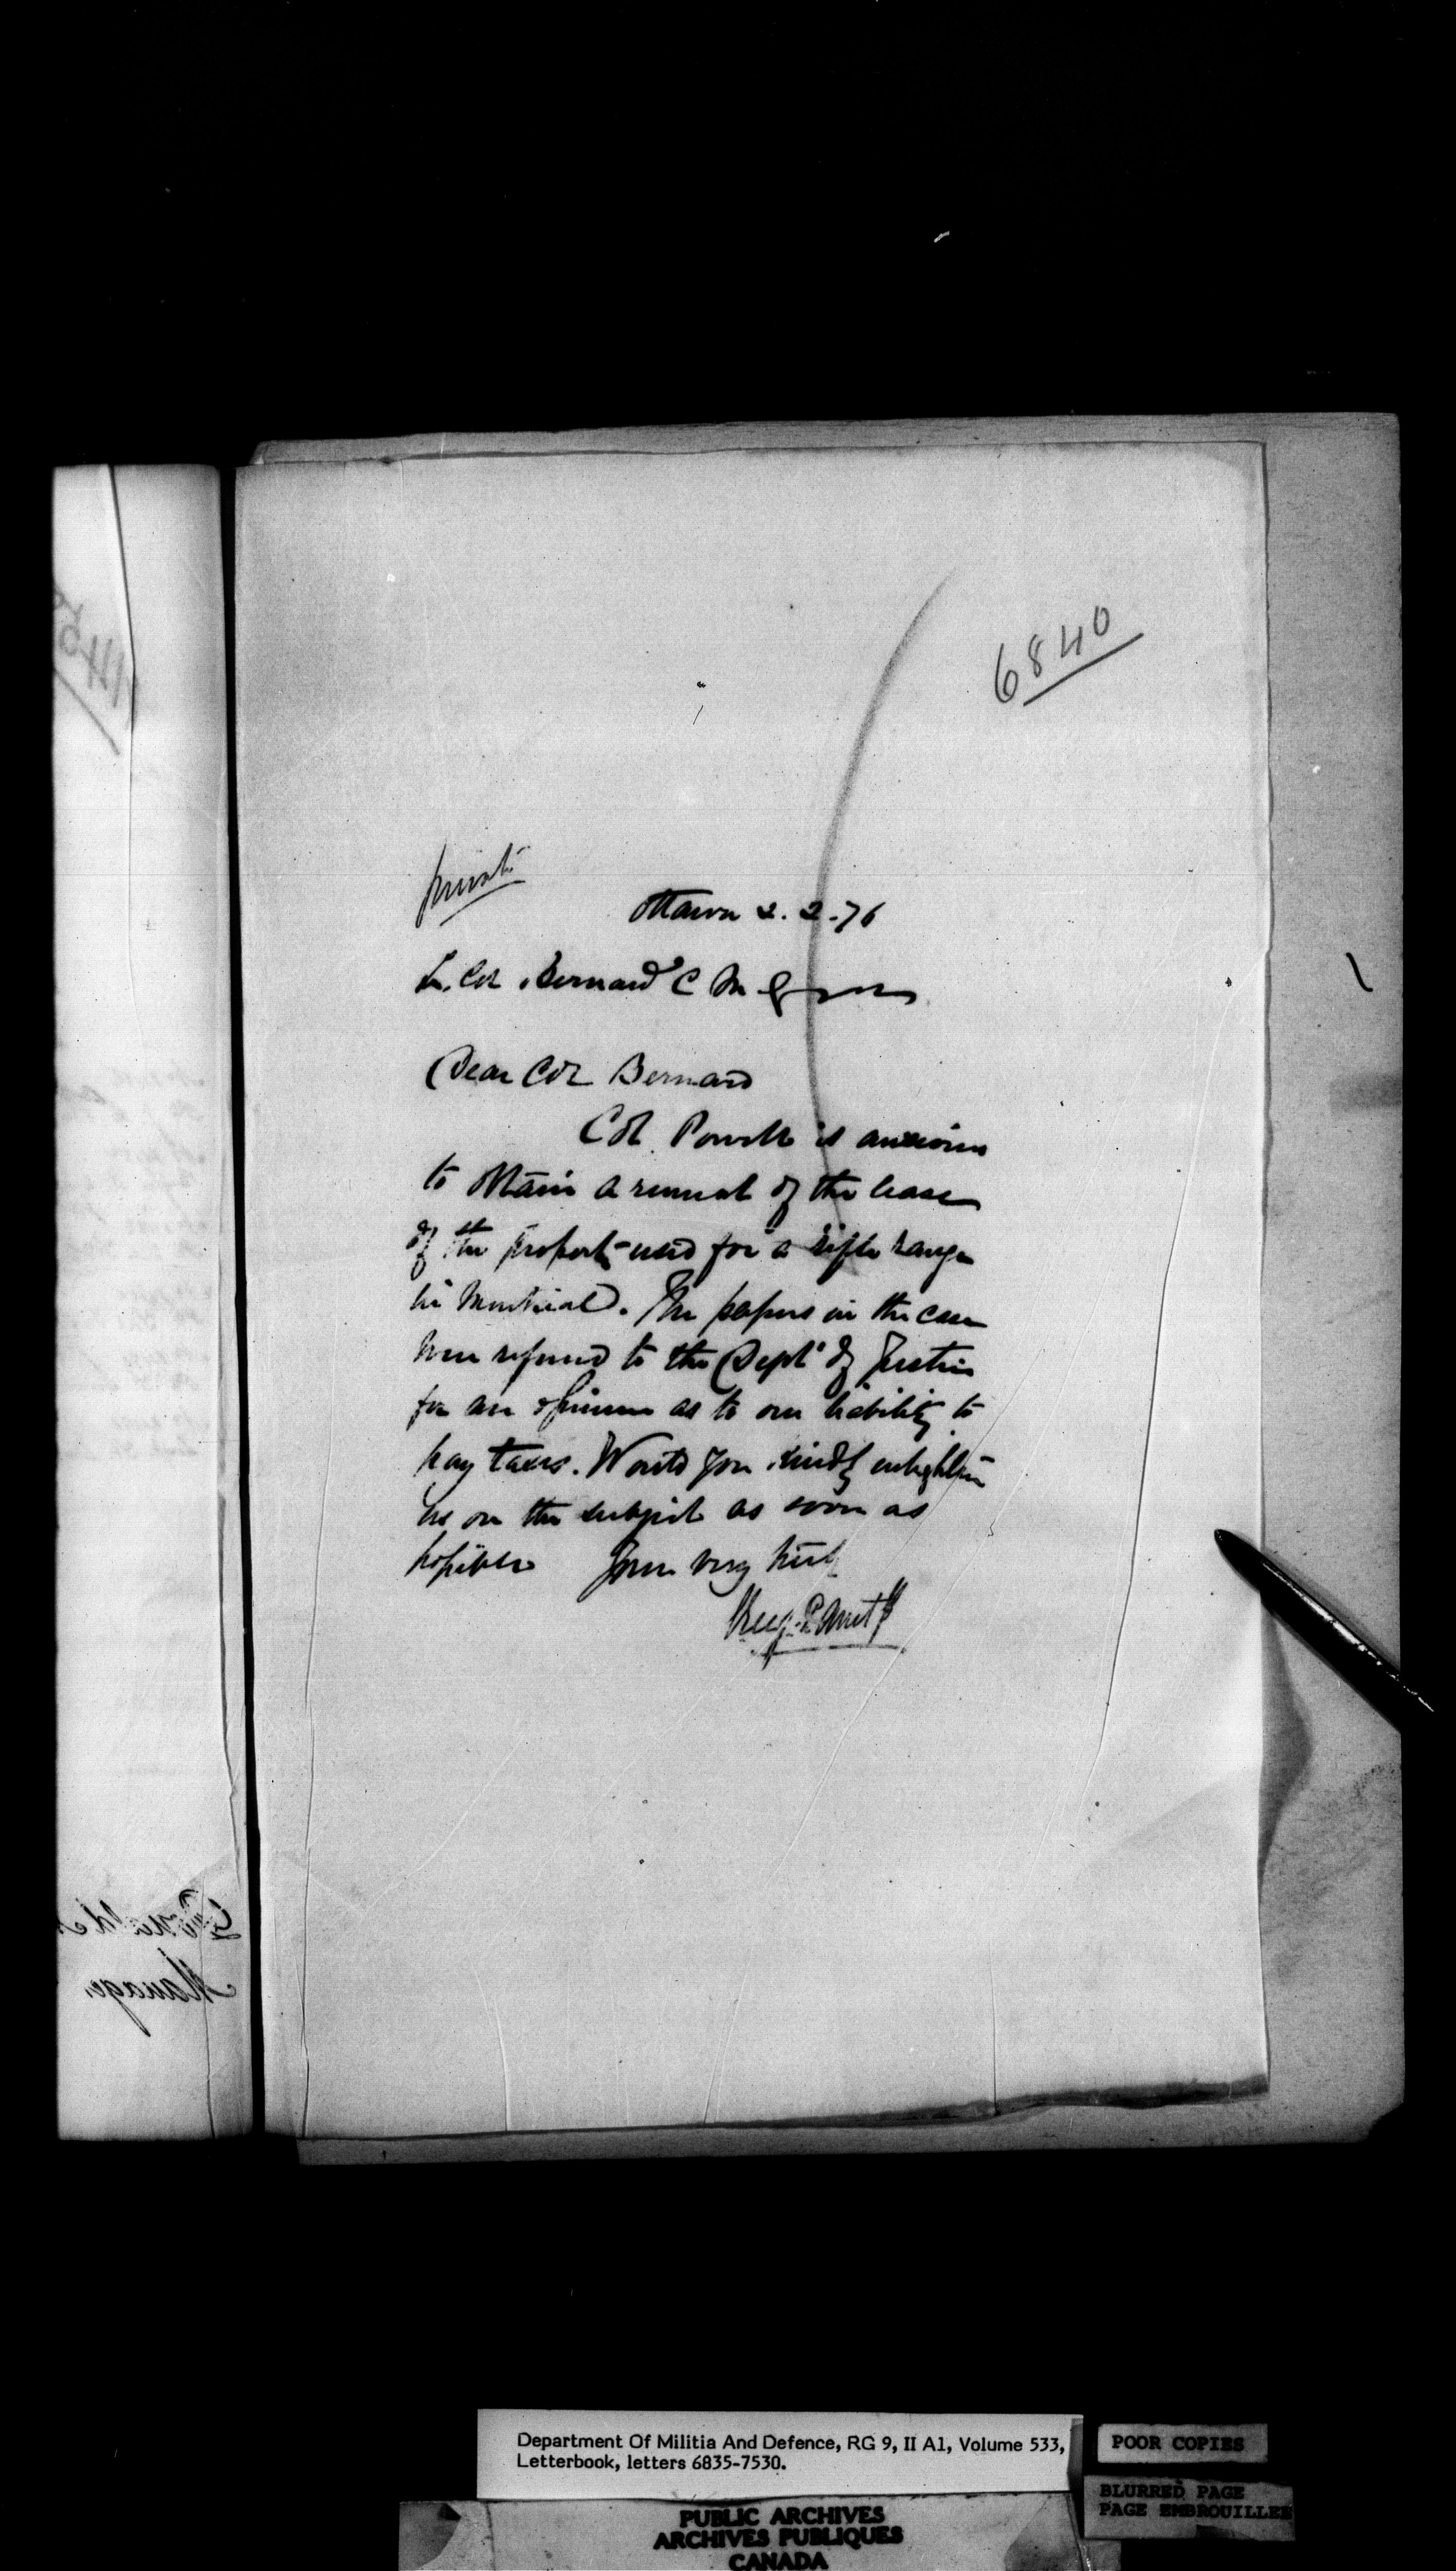 6840
private
Ottawa 2.2.76
Lt. Col. Bernard C M G
Dear Col Bernard
Col. Powell is anxious
to obtain a renewal of the lease
of the property used for a rifle range
in Montreal. The papers in the case
were referred to the Dept of Justice
for an opinion as to our liability to
pay taxes. Would you kindly enlighten
us on the subject as soon as
possible Yours very truly
Manager
Department Of Militia And Defence, RG 9, II A1, Volume 533,
Letterbook, letters 6835-7530.
POOR COPIES
BLURRED PAGE
PAGE EMBROUILLEE
PUBLIC ARCHIVES
ARCHIVES PUBLIQUES
CANADA